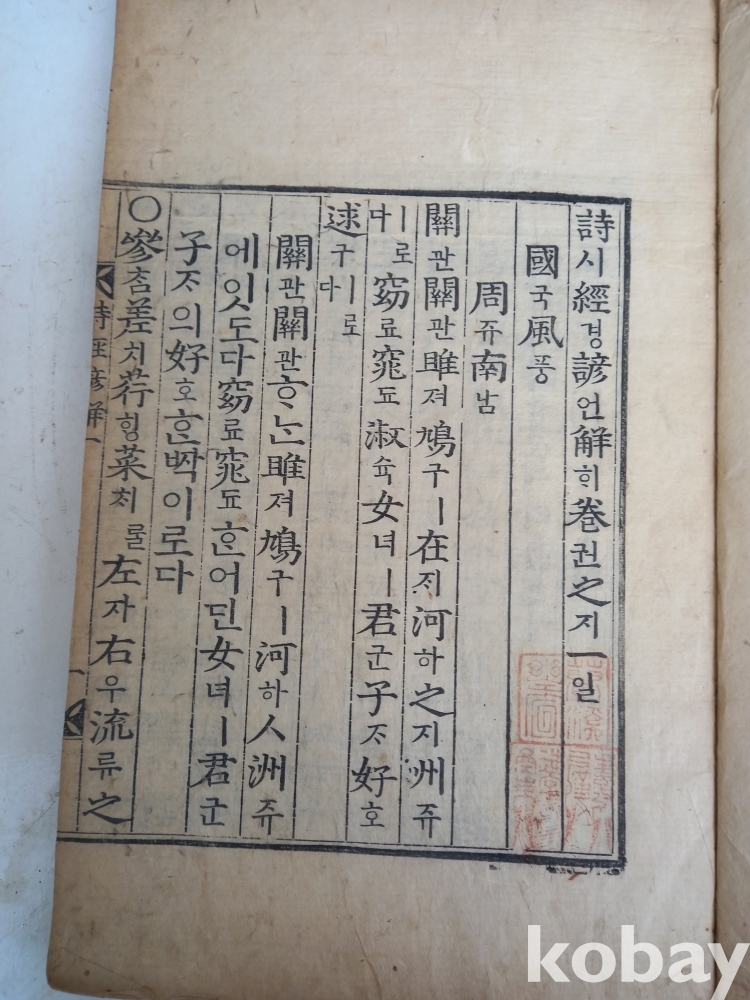 詩시經경諺언解ᄒᆡ卷권之지一일
國국風풍
周쥬南남
關관關관雎져鳩구ㅣ在ᄌᆡ河하之지洲쥬
ㅣ로다窈요窕됴淑슉女녀ㅣ君군子ᄌᆞ好호
逑구ㅣ로다
關관關관ᄒᆞᄂᆞᆫ雎져鳩구ㅣ河하人洲쥬
에잇도다窈요窕됴ᄒᆞᆫ어딘女녀ㅣ君군
子ᄌᆞ의好호ᄒᆞᆫᄧᅡᆨ이로다
○參ᄎᆞᆷ差치荇ᄒᆡᆼ菜ᄎᆡ를左자右우流류之
詩經諺解一
kobay